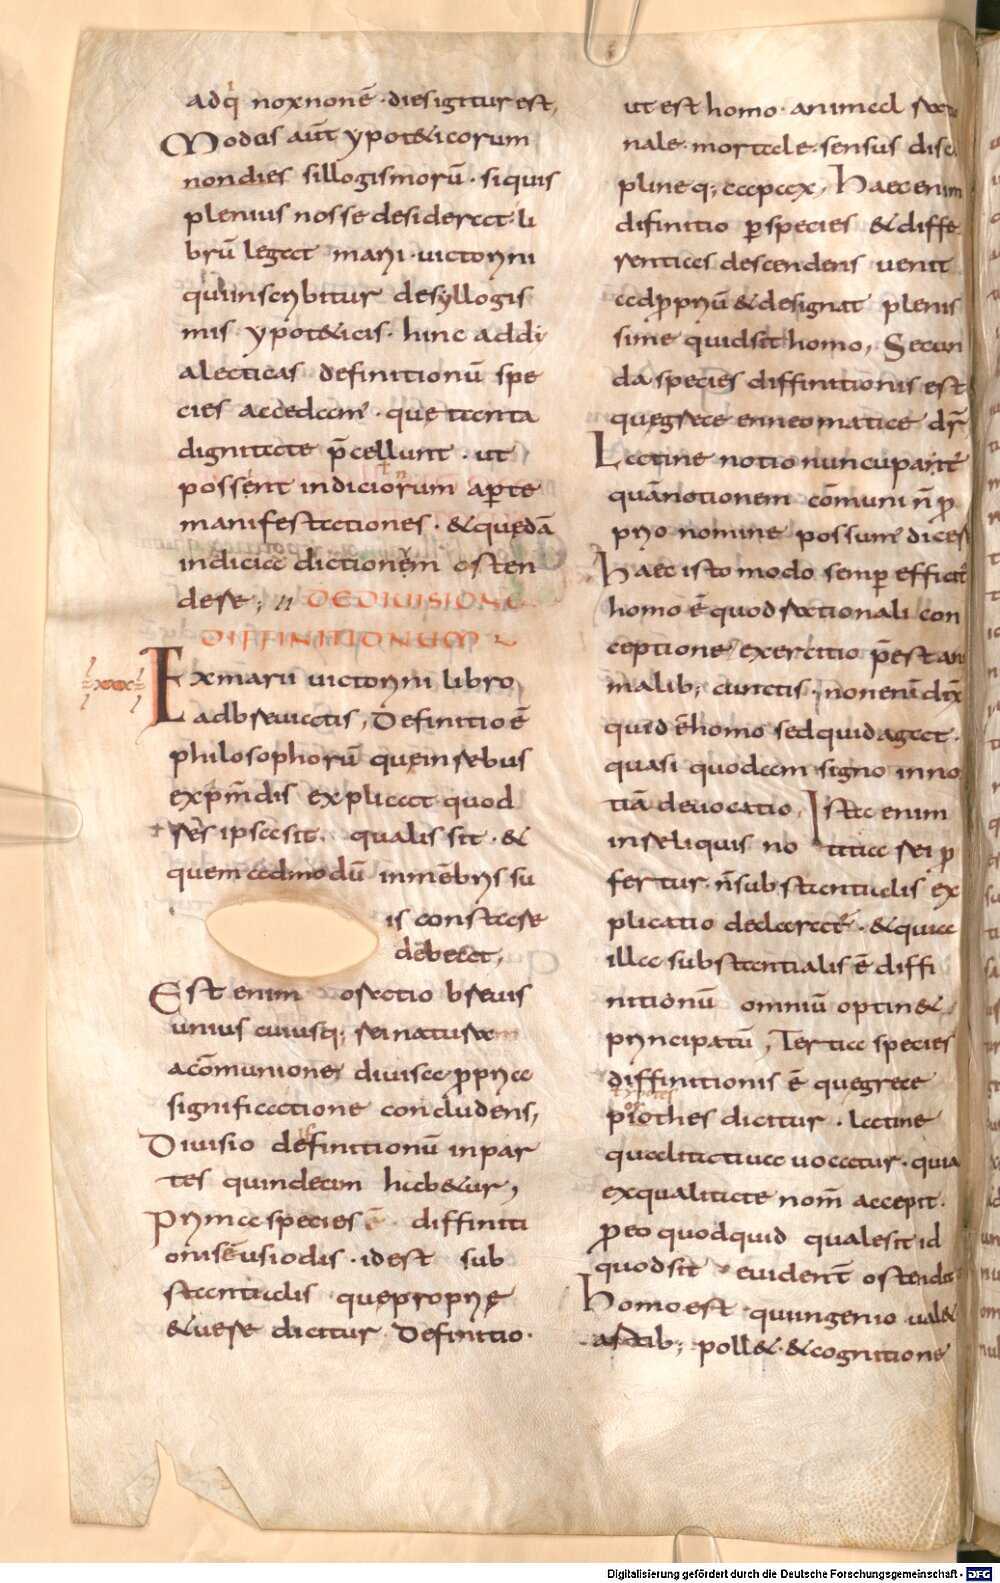 adq̇ nox non ē · dies igitur est,
Modus aūt ypoth&icorum
non dies sillogismorū · si quis
plenius nosse desideret · li
brū legat marii · uictorini
qui inscribitur de syllogis
mis ypoth&icis · hinc addi
alecticas definitionū spe
cies accedam̄ · quę tanta
dignitate p̄cellunt · ut
possent indiciorum aperte
manifestationes · & quędā
indicia dictionem osten
dere; DE DIUISIONE
DIFFINITIONUM
xxxi
Ex marii uictorini libro
adbreuiatis, Definitio ē
philosophorū que in rebus
exprimdis explicat quod
res ipsa sit. qualis sit · &
quem admodū in mēbris su
is constare
debeat,
Est enim oratio breuis
unius cuiusq; rei naturam
a cōmunione diuisa ꝓpria
significatione concludens,
Diuisio definitionū in par
tes quindecim hab&ur,
Prima species ē diffiniti
onis ēusiodis · id est sub
stantialis que proprię
& uere dicitur Definitio ·
ut est homo · animal
nale · mortale · sensus disci
plineq; capax, Haec enim
difinitio ꝑ species & diffe
rentias descendens uenit
ad ꝓpriū & designat plenis
sime quid sit homo, Secun
da species diffinitionis est
quę grece enneomatice dr̄
Latine notio nuncupatur
quā notionem cōmuni n̄ ꝓ
prio nomine possum̄ dicere
Haec isto modo semꝑ efficit
homo ē quod rationali con
ceptione exercitio p̄est ani
malib; cunctis, non enī dix̄
quid ē homo sed quid agat ·
quasi quodam signo in no
tiā deuocatio, Ista enim
in reliquis notitia rei ꝓ
fertur · n̄ substantialis ex
plicatio declarat · & quia
illa substantialis ē diffi
nitionū omniū optin&
principatū, Tertia species
diffinitionis ē que grece
piothes dicitur · latine
qualitatiua uocatur · quia
ex qualitate nom̄ accepit ·
ꝓ eo quod quid quale sit id
quod sit euident̄ ostendit
Homo est qui ingenio ual&
artib; poll& · & cognitione
Digitalisierung gefördert durch die Deutsche Forschungsgemeinschaft - DFG